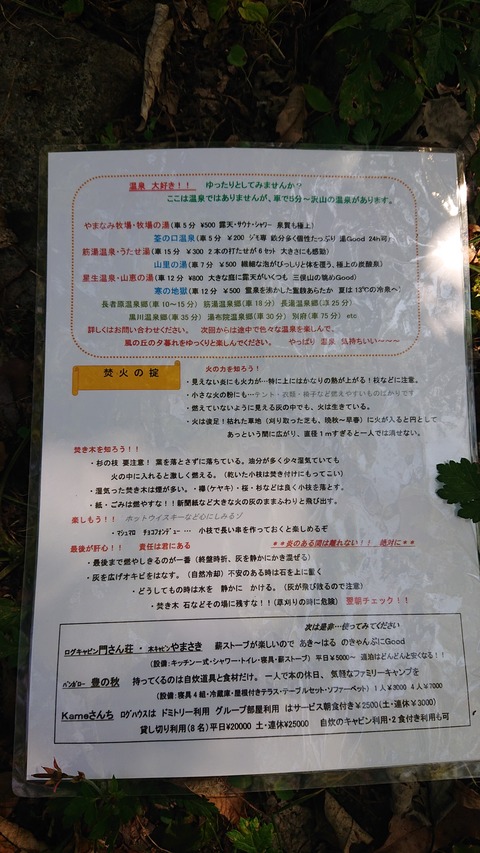 温泉 大好き！！ ゆったりとしてみませんか？
ここは温泉ではありませんが、車で5分～沢山の温泉があります。
やまなみ牧場・牧場の湯(車5分 ¥500 露天・サウナ・シャワー 泉質も極上)
筌の口温泉(車5分 ¥200 ジモ専 鉄分多く個性たっぷり 湯Good 24h可)
筋湯温泉・うたせ湯(車15分 ¥300 2本の打たせが6セット 大きさにも感動)
山里の湯(車7分 ¥500 繊細な泡がびっしりと体を覆う、極上の炭酸泉)
星生温泉・山恵の湯(車12分 ¥800 大きな庭に露天がいくつも 三俣山の眺めGood)
寒の地獄(車12分 ¥500 霊泉を沸かした薬湯あたたか 夏は13℃の冷泉へ)
長者原温泉郷(車10～15分) 筋湯温泉郷(車18分) 長湯温泉郷(車25分)
黒川温泉郷(車35分) 湯布院温泉郷(車30分) 別府(車75分) etc
詳しくはお問い合わせください。 次回からは途中で色々な温泉を楽しんで、
風の丘の夕暮れをゆっくりと楽しんでください。 やっぱり 温泉 気持ちいい～～～
焚火の掟
火の力を知ろう！
・見えない炎にも火力が…特に上にはかなりの熱が上がる！枝などに注意。
・小さな火の粉にも…テント・衣類・椅子など燃えやすいものばかりです
・燃えていないように見える灰の中でも、火は生きている。
・火は後足！枯れた草地(刈り取った芝も、晩秋～早春)に火が入ると円として
あっという間に広がり、直径1mすぎると一人では消せない。
焚き木を知ろう！！
・杉の枝 要注意！ 葉を落とさずに落ちている。油分が多く少々湿気ていても
火の中に入れると激しく燃える。(乾いた小枝は焚き付けにもってこい)
・湿気った焚き木は煙が多い。・欅(ケヤキ)・桜・杉などは良く小枝を落とす。
・紙・ごみは燃やすな！！新聞紙など大きな火の灰のままふわりと飛び出す。
楽しもう！！ ホットウイスキーなど心にしみるゾ
・マシュマロ チョコフォンデュー… 小枝で長い串を作っておくと楽しめるぞ
最後が肝心！！ 責任は君にある ＊＊炎のある間は離れない！！ 絶対に＊＊
・最後まで燃やしきるのが一番(終盤時折、灰を静かにかき混ぜる)
・灰を広げオキビをはなす。(自然冷却)不安のある時は石を上に置く
・どうしてもの時は水を 静かに かける。(灰が飛び散るので注意)
・焚き木 石などその場に残すな！！(草刈りの時に危険) 翌朝チェック！！
次は是非…使ってみてください
ログキャビン門さん荘・木キャビンやまさき 薪ストーブが楽しいので あき～はる のきゃんぷにGood
(設備:キッチン一式・シャワー・トイレ・寝具・薪ストーブ) 平日¥5000～ 連泊はどんどんと安くなる！！
バンガロー 豊の秋 持ってくるのは自炊道具と食材だけ。 一人で本の休日、気軽なファミリーキャンプを
(設備:寝具4組・冷蔵庫・屋根付きテラス・テーブルセット・ソファーベット) 1人¥3000 4人¥7000
Kameさんち ログハウスは ドミトリー利用 グループ部屋利用 はサービス朝食付き¥2500(土・連休¥3000)
貸し切り利用(8名)平日¥20000 土・連休¥25000 自炊のキャビン利用・2食付き利用も可